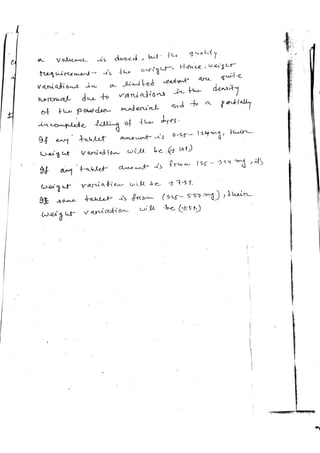 a volume is dosed, but the quality
requirement is the weight. Hence, weight
variations in a limited extent are quite
normal due to variations in the density
of the powder material and to a partially
incomplete filling of the dyes.
If any tablet amount is 0.25 - 124 mg, their
weight variation will be (± 10%)
If any tablet amount is from 125 - 324 mg, its
weight variation will be ± 7.5%.
If some tablet is from (325 - 550 mg), their
weight variation will be (± 5%)